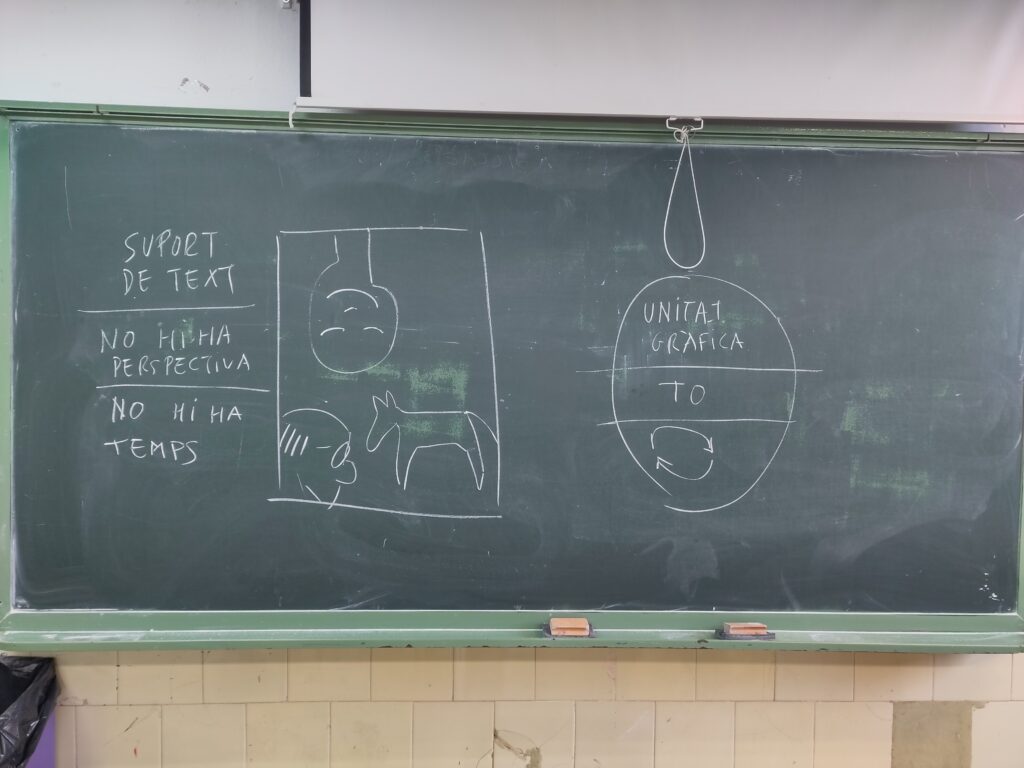 SUPORT
DE TEXT
NO HI HA
PERSPECTIVA
NO HI HA
TEMPS
UNITAT
GRÀFICA
TO